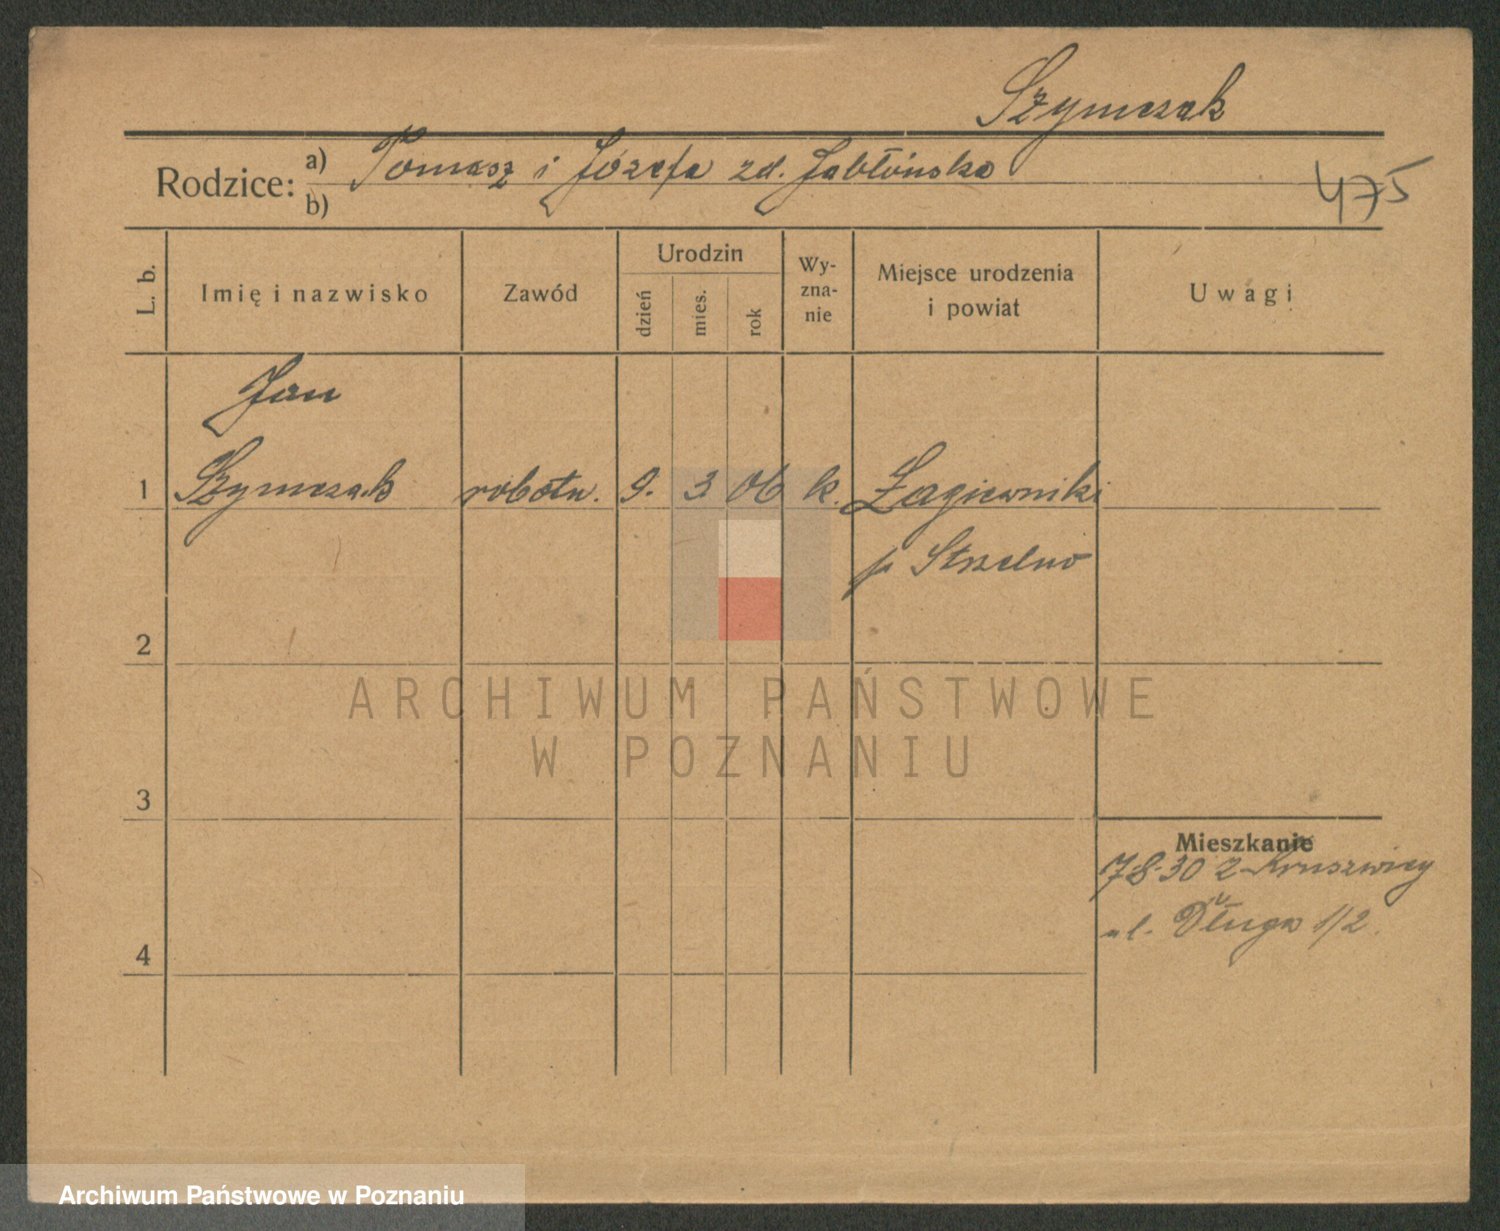 Szymczak
Rodzice: a) Tomasz i Józefa zd. Jabłońska
b)
475
L. b.
Imię i nazwisko
Zawód
Urodzin
dzień
mies.
rok
Wy-
zna-
nie
Miejsce urodzenia
i powiat
Uwagi
Jan
1 Szymczak robotn. 9. 3 06 k. Łagiewniki
p Strzelno
2
3
4
Mieszkanie
7·8·30 z Kruszwicy
ul. Długa 1/2.
ARCHIWUM PAŃSTWOWE
W POZNANIU
Archiwum Państwowe w Poznaniu